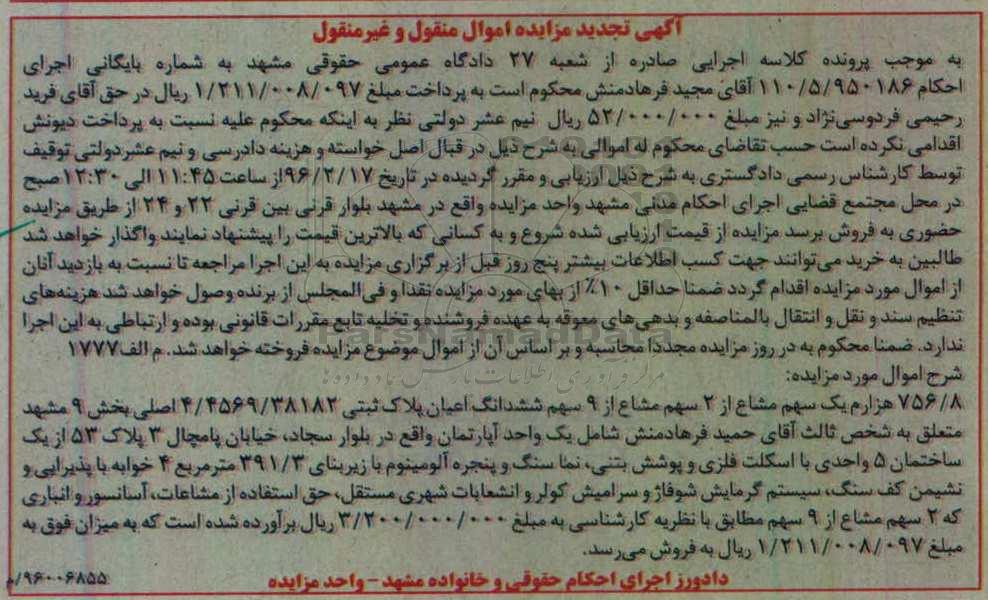 آگهی تجدید مزایده اموال منقول و غیرمنقول
به موجب پرونده کلاسه اجرایی صادره از شعبه ۲۷ دادگاه عمومی حقوقی مشهد به شماره بایگانی اجرای
احکام ۱۱۰/۵/۹۵۰۱۸۶ آقای مجید فرهادمنش محکوم است به پرداخت مبلغ ۱/۲۱۱/۰۰۸/۰۹۷ ریال در حق آقای فرید
رحیمی فردوسی‌نژاد و نیز مبلغ ۵۲/۰۰۰/۰۰۰ ریال نیم عشر دولتی نظر به اینکه محکوم علیه نسبت به پرداخت دیونش
اقدامی نکرده است حسب تقاضای محکوم له اموالی به شرح ذیل در قبال اصل خواسته و هزینه دادرسی و نیم عشر دولتی توقیف
توسط کارشناس رسمی دادگستری به شرح ذیل ارزیابی و مقرر گردیده در تاریخ ۹۶/۲/۱۷ از ساعت ۱۱:۴۵ الی ۱۲:۳۰ صبح
در محل مجتمع قضایی اجرای احکام مدنی مشهد واحد مزایده واقع در مشهد بلوار قرنی بین قرنی ۲۲ و ۲۴ از طریق مزایده
حضوری به فروش برسد مزایده از قیمت ارزیابی شده شروع و به کسانی که بالاترین قیمت را پیشنهاد نمایند واگذار خواهد شد
طالبین به خرید می‌توانند جهت کسب اطلاعات بیشتر پنج روز قبل از برگزاری مزایده به این اجرا مراجعه تا نسبت به بازدید آنان
از اموال مورد مزایده اقدام گردد ضمنا حداقل ۱۰٪ از بهای مورد مزایده نقدا و فی‌المجلس از برنده وصول خواهد شد هزینه‌های
تنظیم سند و نقل و انتقال بالمناصفه و بدهی‌های معوقه به عهده فروشنده و تخلیه تابع مقررات قانونی بوده و ارتباطی به این اجرا
ندارد. ضمنا محکوم به در روز مزایده مجددا محاسبه و بر اساس آن از اموال موضوع مزایده فروخته خواهد شد. م الف ۱۷۷۷
شرح اموال مورد مزایده:
۷۵۶/۸ هزارم یک سهم مشاع از ۲ سهم مشاع از ۹ سهم ششدانگ اعیان پلاک ثبتی ۴/۴۵۶۹/۳۸۱۸۲ اصلی بخش ۹ مشهد
متعلق به شخص ثالث آقای حمید فرهادمنش شامل یک واحد آپارتمان واقع در بلوار سجاد، خیابان پامچال ۳ پلاک ۵۳ از یک
ساختمان ۵ واحدی با اسکلت فلزی و پوشش بتنی، نما سنگ و پنجره آلومینوم با زیربنای ۳۹۱/۳ مترمربع ۴ خوابه با پذیرایی و
نشیمن کف سنگ، سیستم گرمایش شوفاژ و سرامیش کولر و انشعابات شهری مستقل، حق استفاده از مشاعات، آسانسور و انباری
که ۲ سهم مشاع از ۹ سهم مطابق با نظریه کارشناسی به مبلغ ۳/۲۰۰/۰۰۰/۰۰۰ ریال برآورده شده است که به میزان فوق به
مبلغ ۱/۲۱۱/۰۰۸/۰۹۷ ریال به فروش می‌رسد.
دادورز اجرای احکام حقوقی و خانواده مشهد - واحد مزایده
۹۶۰۰۶۸۵۵/م
ParsNamadData
مرکز فرآوری اطلاعات پارس نماد داده‌ها